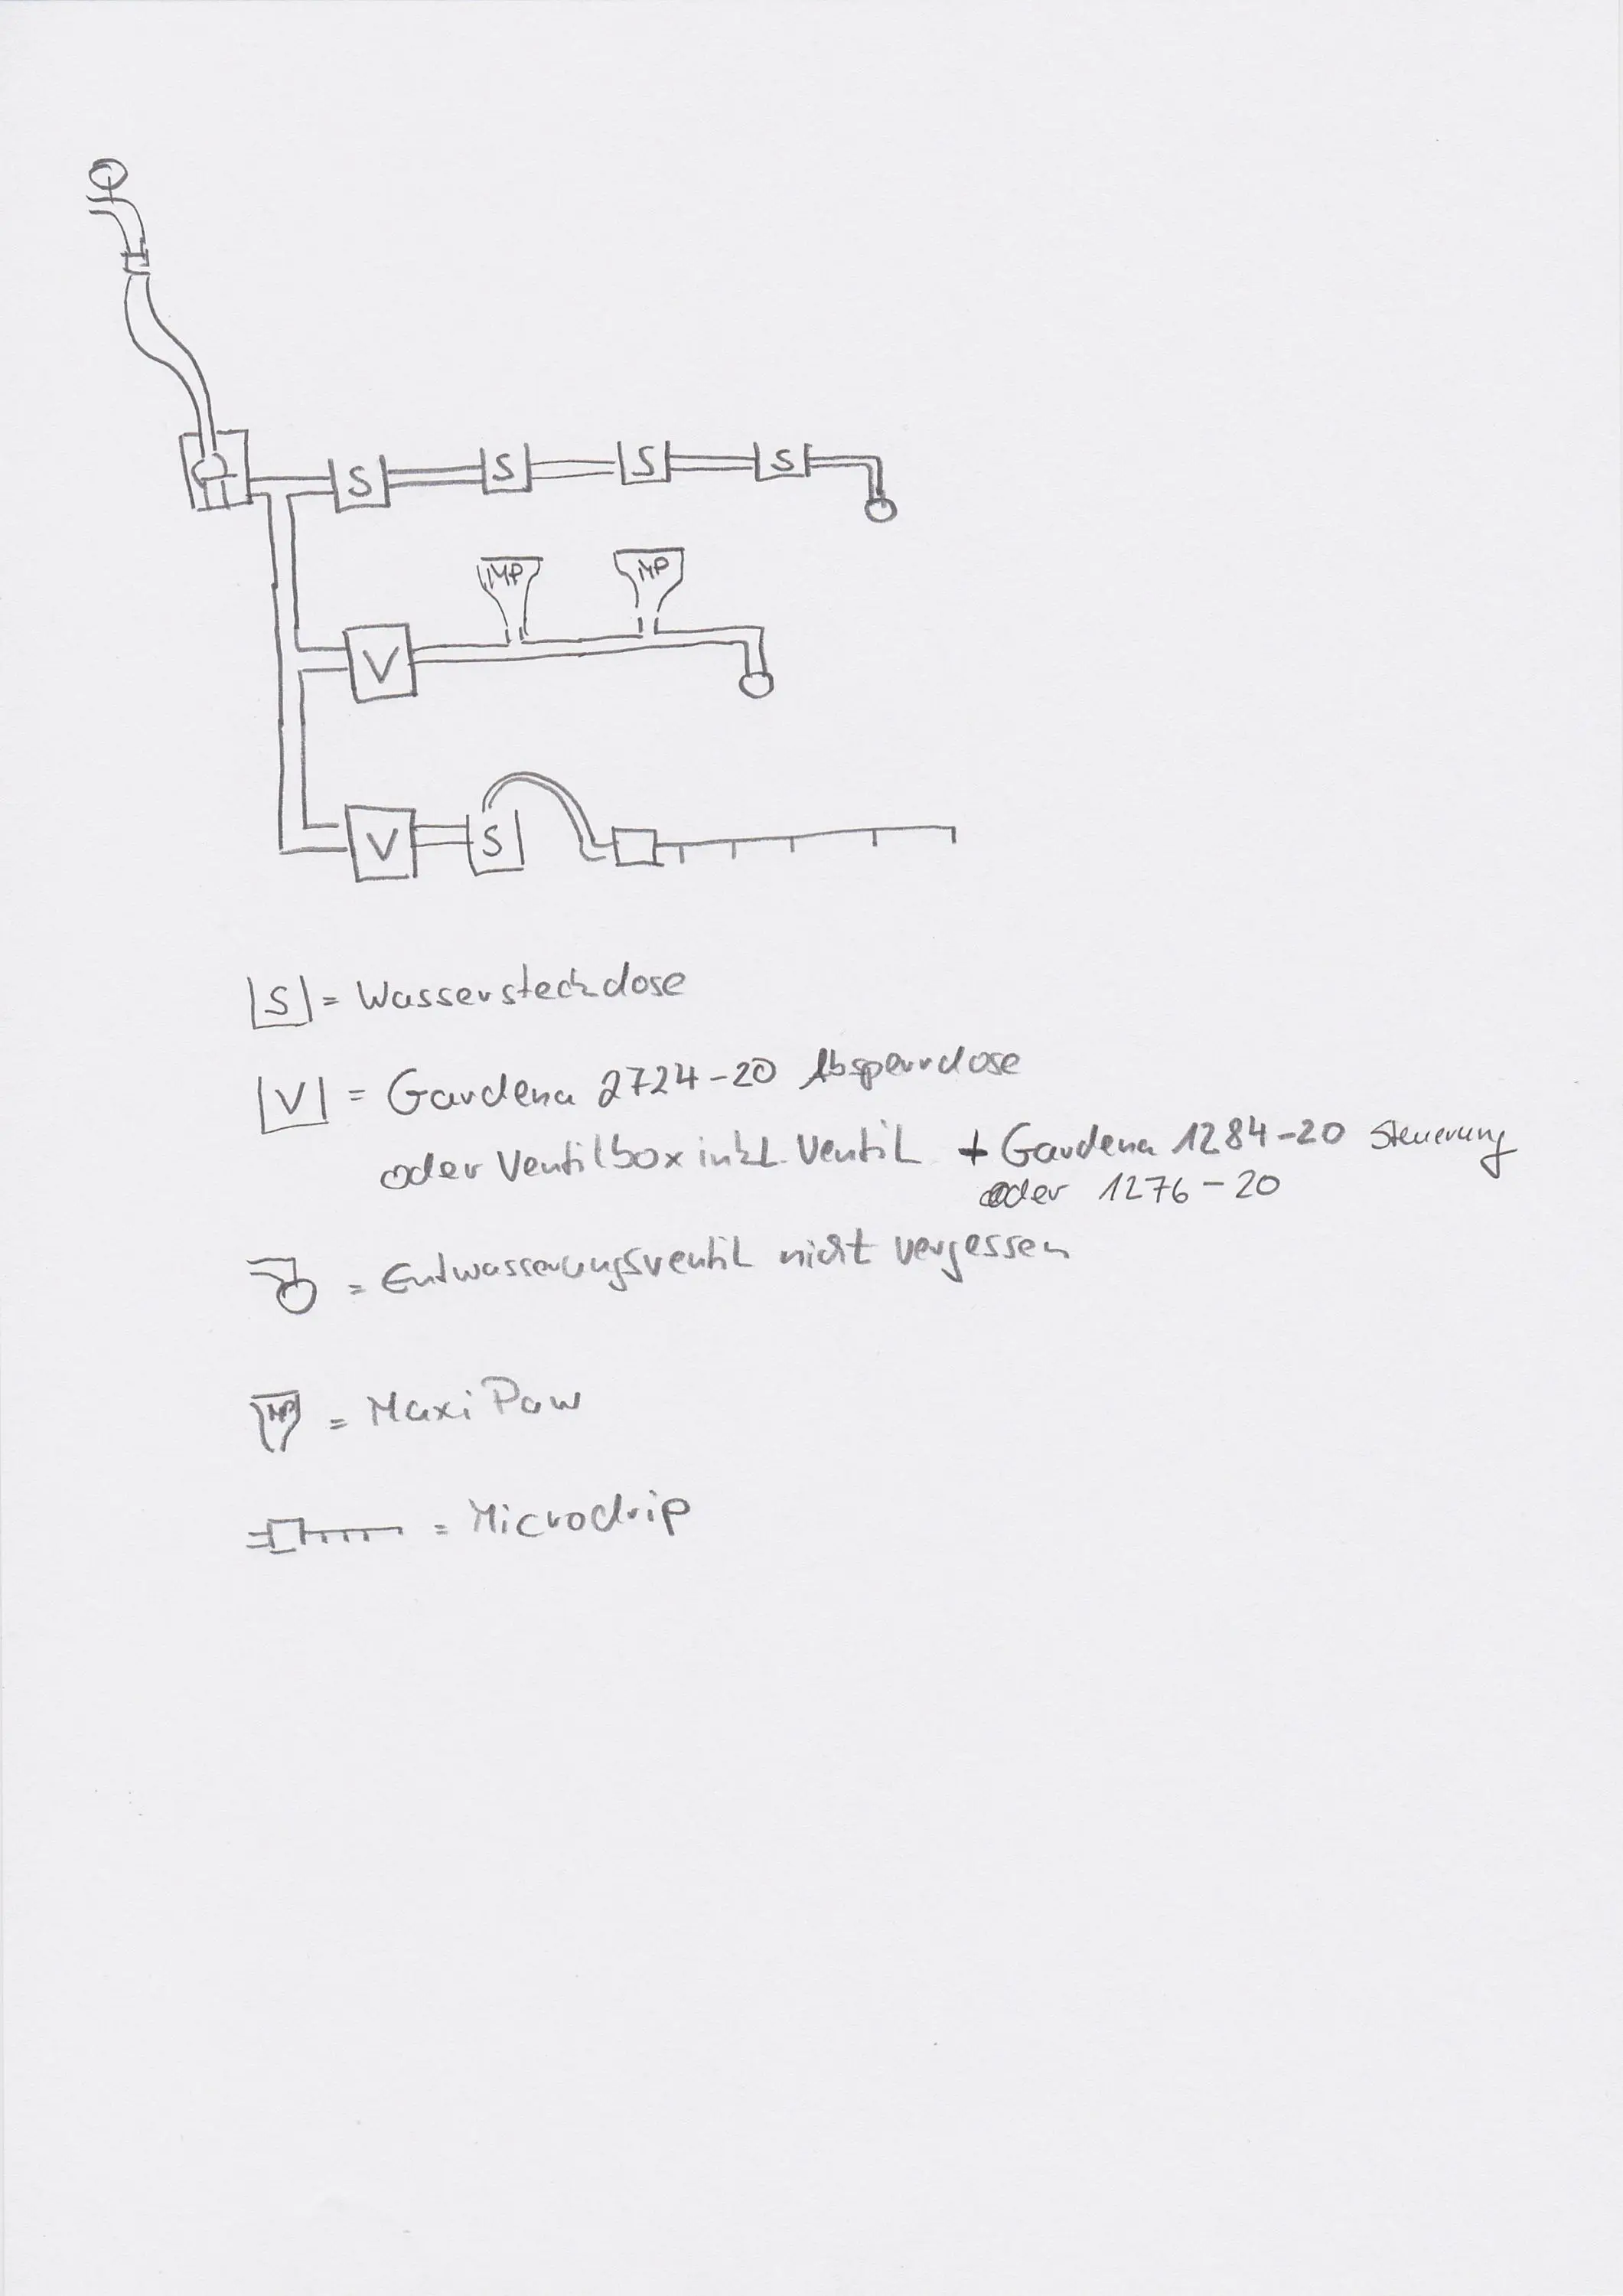 S S S S
MP MP
V
V S
S = Wassersteckdose
V = Gardena 2724-20 Absperrdose
oder Ventilbox inkl. Ventil + Gardena 1284-20 Steuerung
oder 1276-20
= Entwasserungsventil nicht vergessen
MP = Maxi Paw
= Microdrip